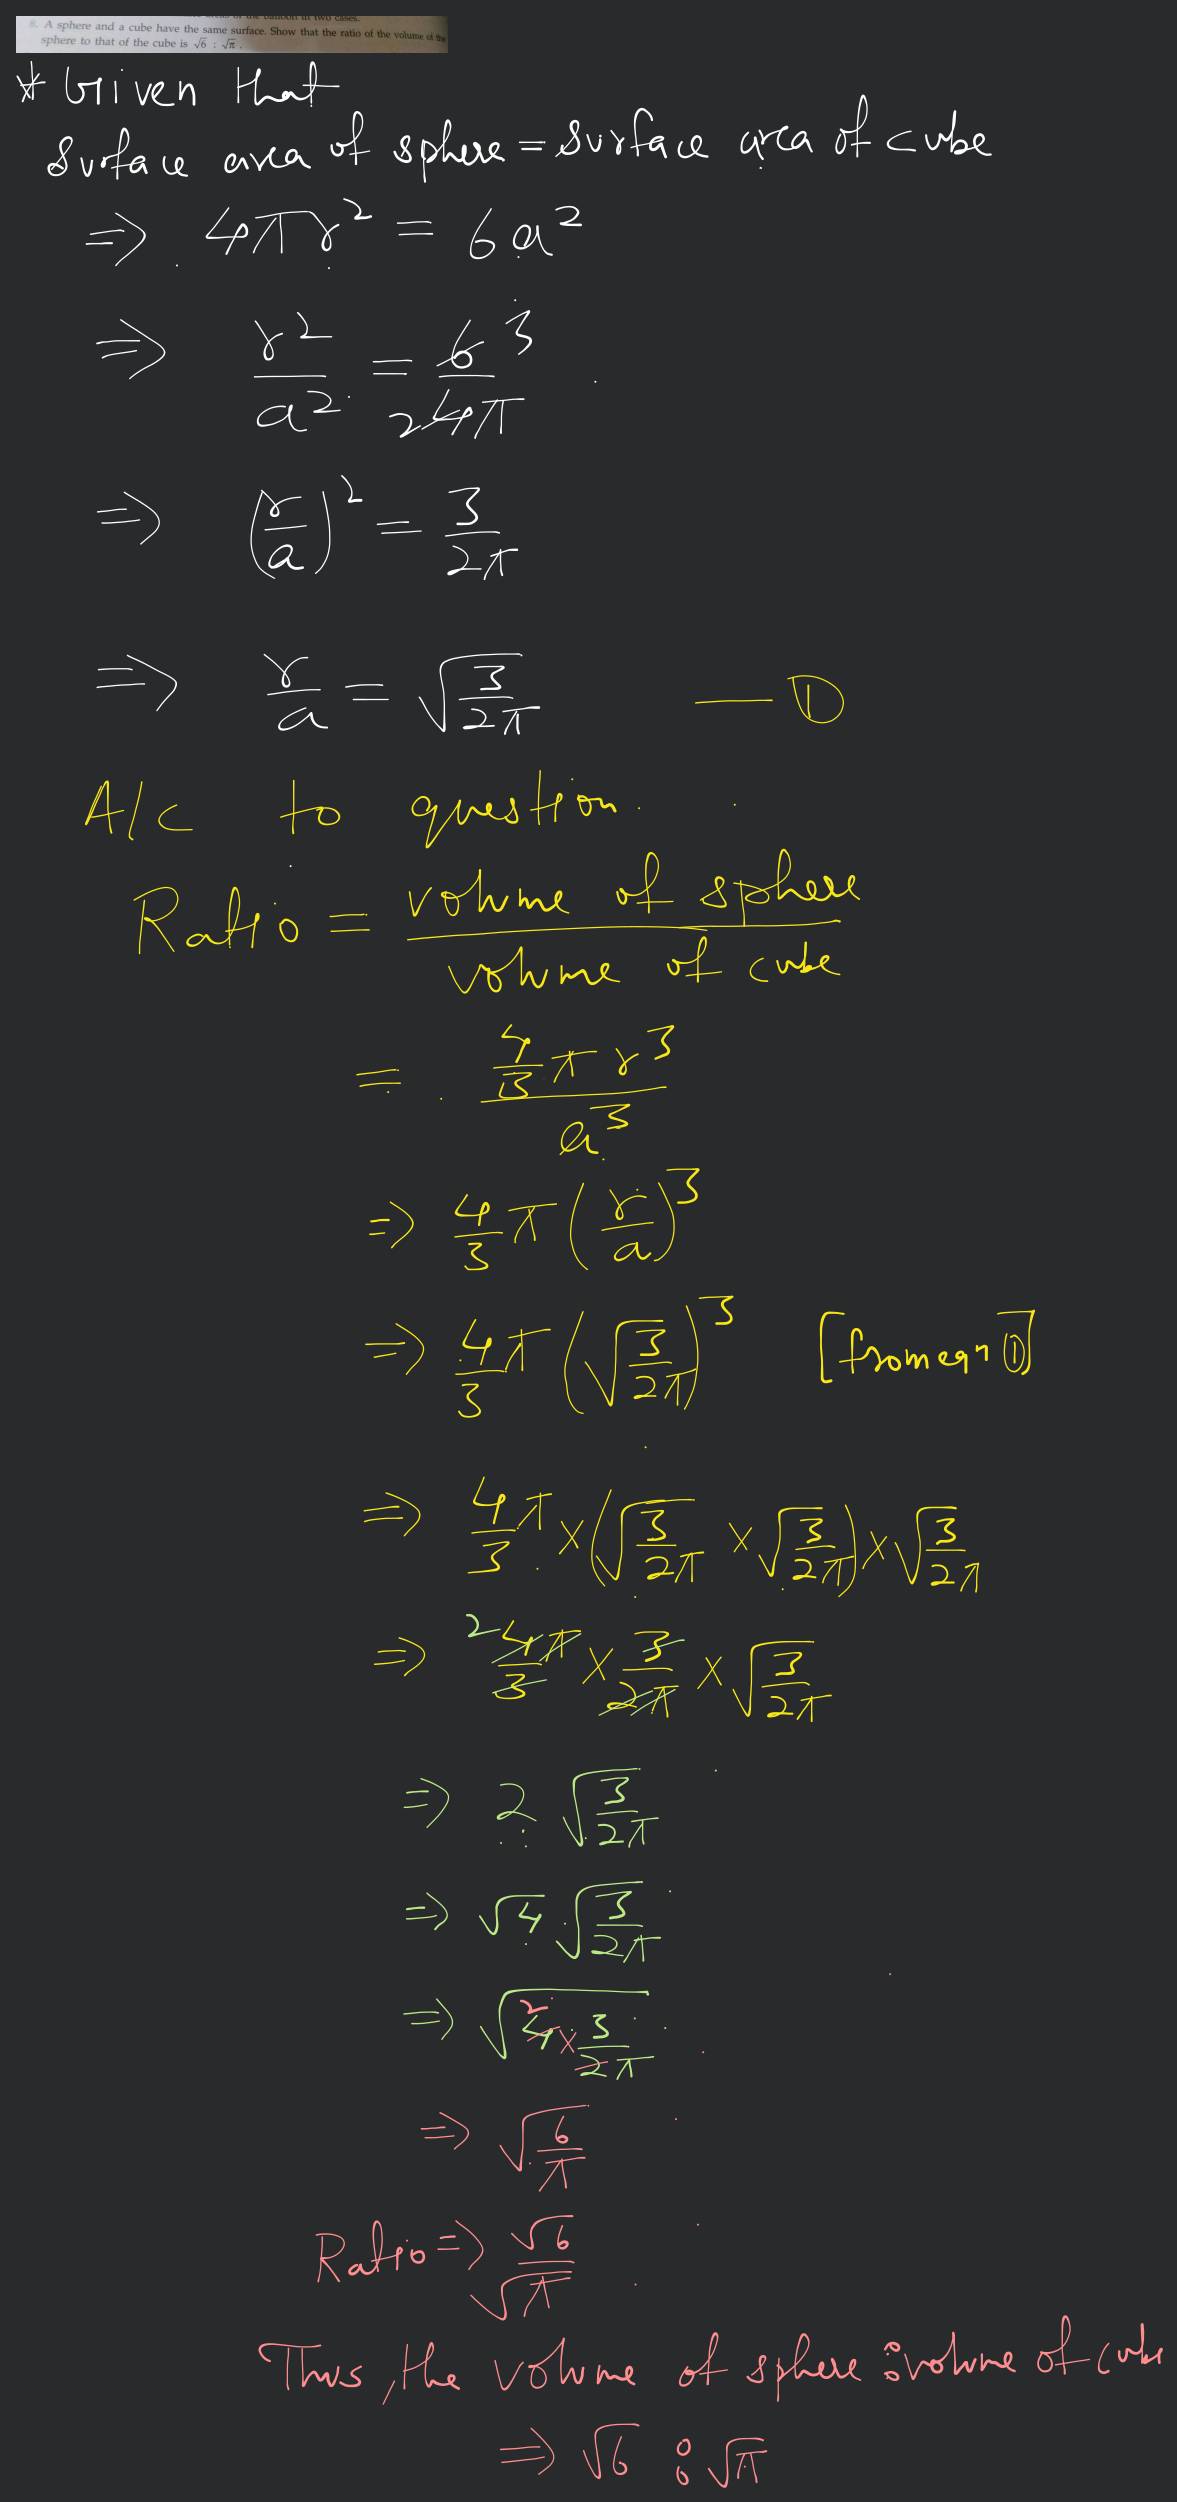 areas of the balloon in two cases.
8. A sphere and a cube have the same surface. Show that the ratio of the volume of the
sphere to that of the cube is √6 : √π.
* Given that
Surface area of sphere = Surface area of cube
⇒ 4πr² = 6a²
⇒ r²/a² = 6 3/2 4π
⇒ (r/a)² = 3/2π
⇒ r/a = √(3/2π) — ①
A/c to question.
Ratio = volume of sphere / volume of cube
= 4/3 π r³ / a³
⇒ 4/3 π (r/a)³
⇒ 4/3 π (√(3/2π))³ [from eqn ①]
⇒ 4/3 π × (√(3/2π) × √(3/2π)) × √(3/2π)
⇒ 2 4π/3 × 3/2π × √(3/2π)
⇒ 2 √(3/2π)
⇒ √4 . √(3/2π)
⇒ √(4 2 × 3/2π)
⇒ √(6/π)
Ratio ⇒ √6/√π
Thus, the volume of sphere : volume of cube
⇒ √6 : √π